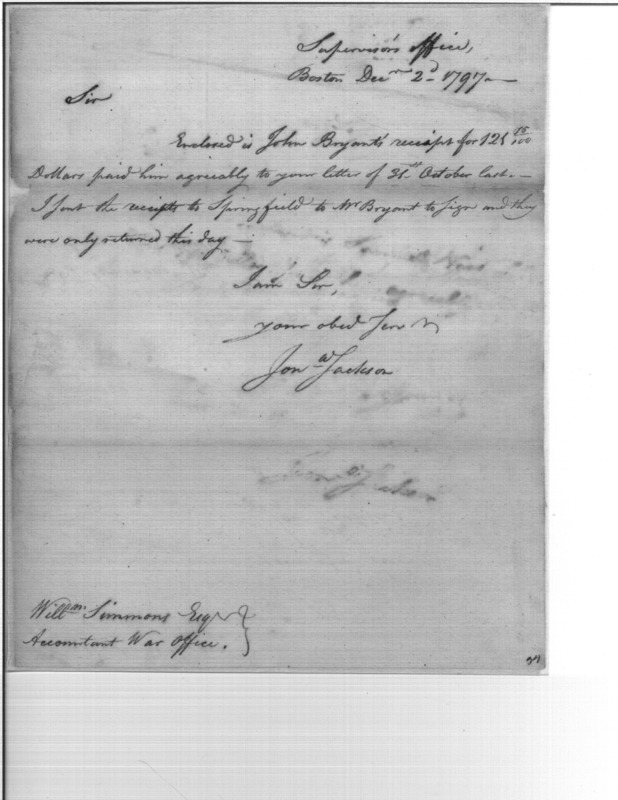 Supervisor's office,
Boston Decm 2d 1797 —
Sir
Enclosed is John Bryant's receipt for 125 15/100
Dollars paid him agreeably to your letter of 31st October last. —
I sent the receipts to Springfield to Mr Bryant to sign and they
were only returned this day —
I am Sir,
your obed Serv
Jona Jackson
Willm. Simmons Esqr
Accountant War Office.